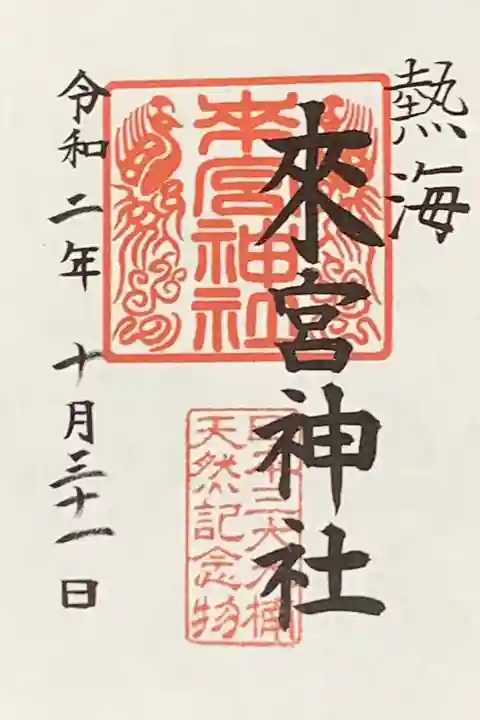 熱海
來宮神社
來宮神社
日本三大大楠
天然記念物
令和二年 十月三十一日